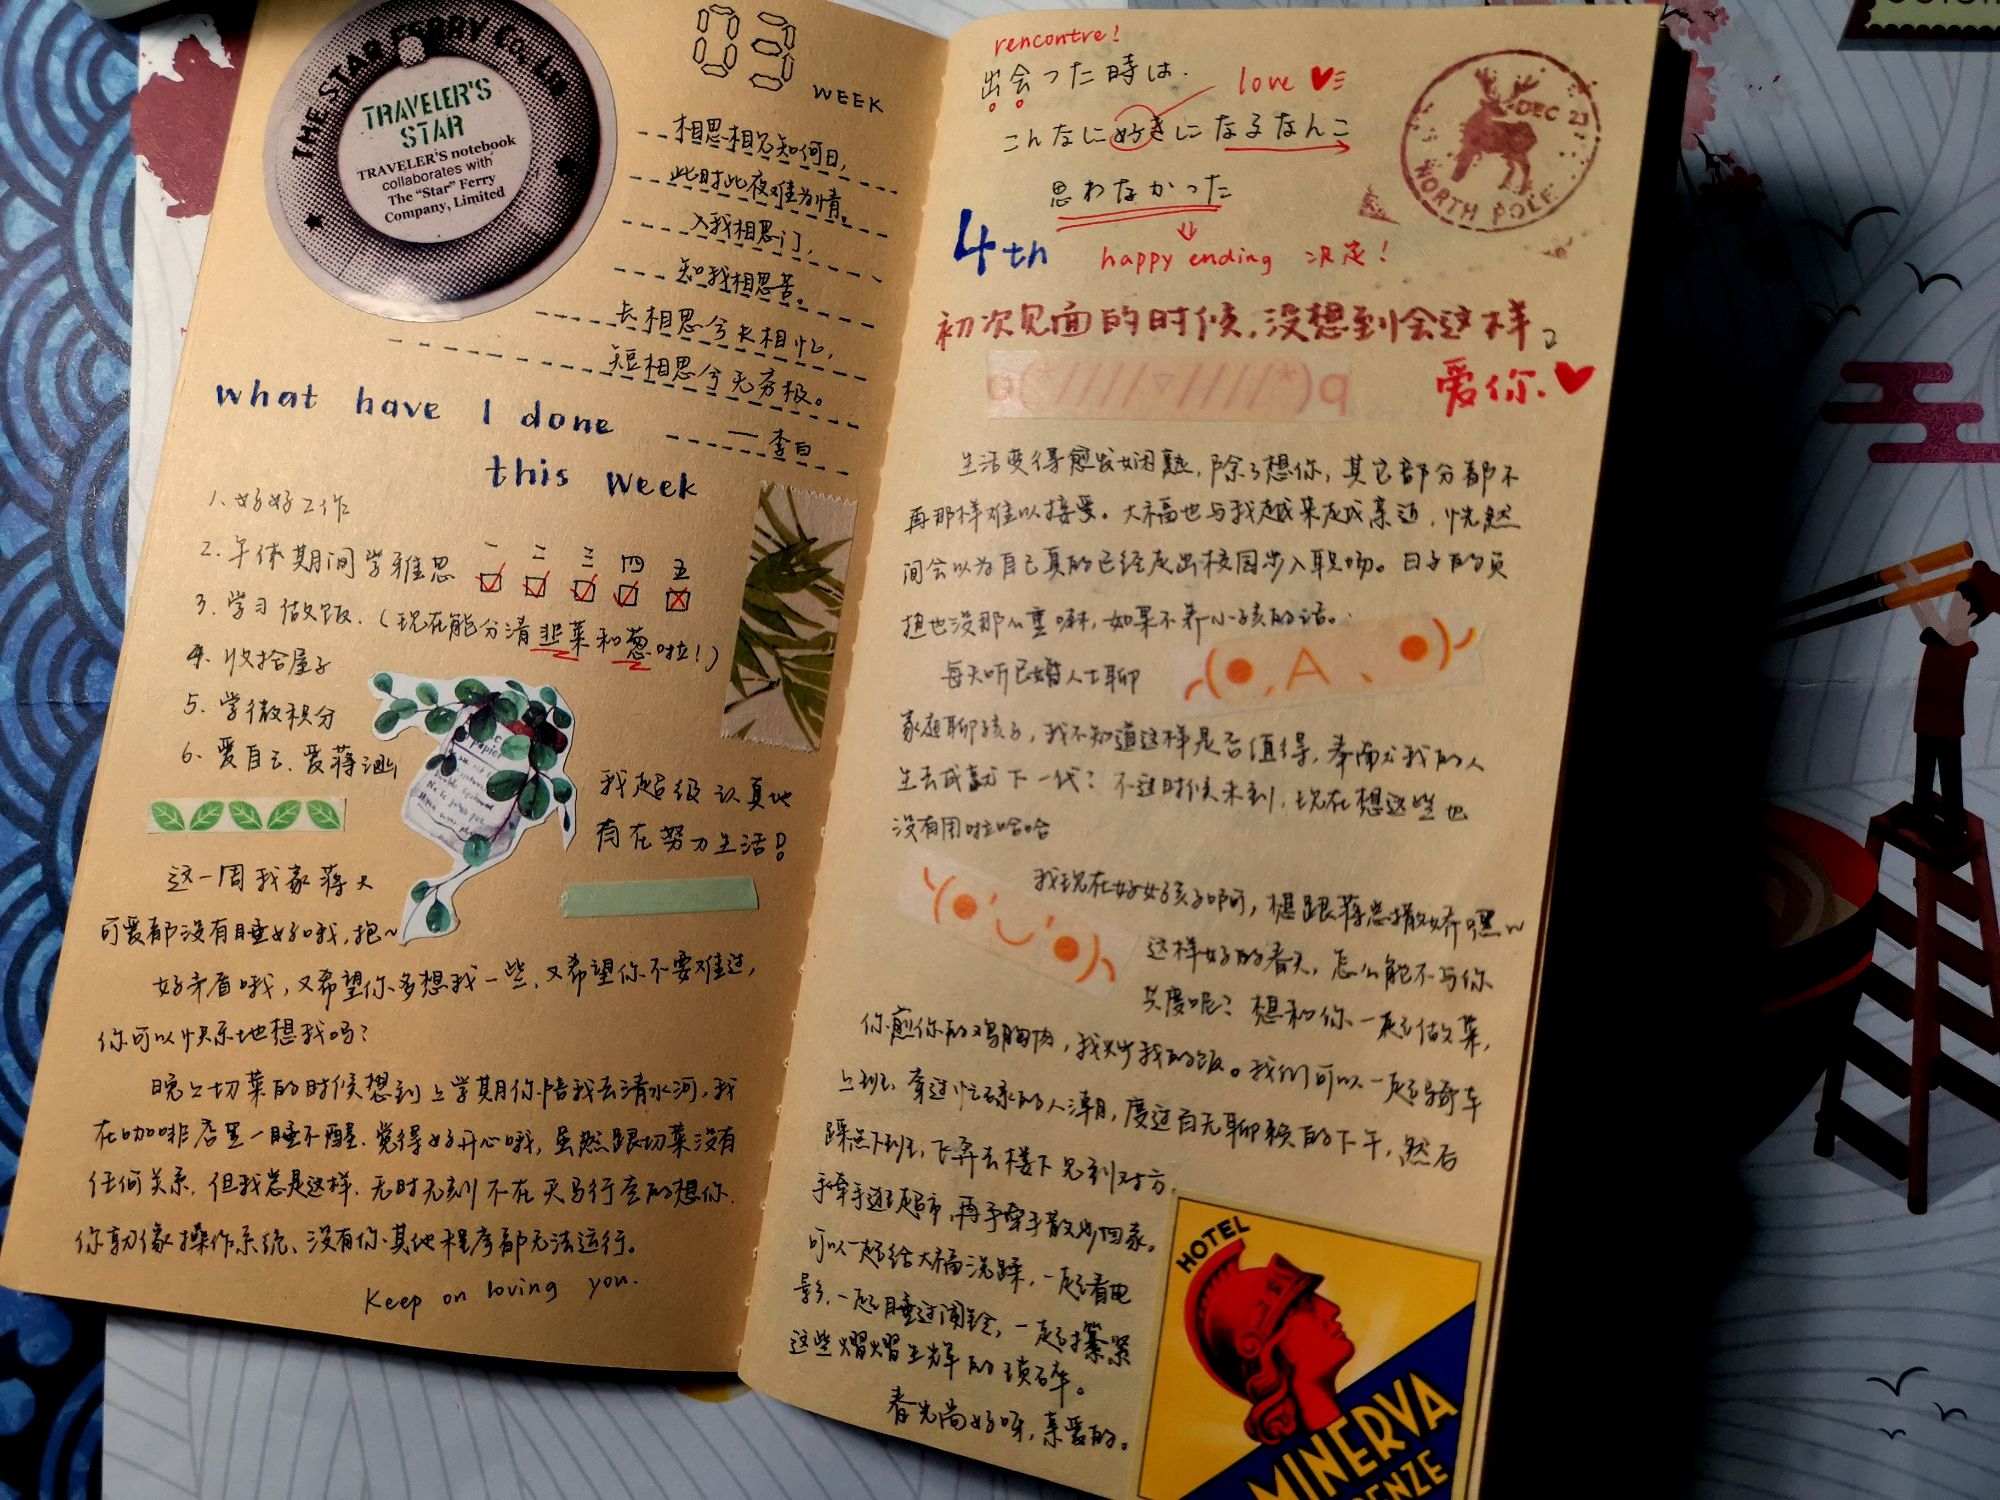 THE STAR FERRY CO., LTD.
TRAVELER'S
STAR
TRAVELER'S notebook
collaborates with
The "Star" Ferry
Company, Limited
03 WEEK
相思相见知何日，
此时此夜难为情。
入我相思门，
知我相思苦。
长相思兮长相忆，
短相思兮无穷极。
——李白
what have I done
this week
1. 好好工作
2. 午休期间学雅思 一 二 三 四 五
3. 学习做饭.（现在能分清韭菜和葱啦！）
4. 收拾屋子
5. 学微积分
6. 爱自己、爱蒋
我超级认真地
有在努力生活！
这一周我家蒋大
可爱都没有睡好和我，抱~
好矛盾哦，又希望你多想我一些，又希望你不要难过，
你可以快乐地想我吗？
晚上切菜的时候想到上学期你陪我去清水河，我
在咖啡店里一睡不醒. 觉得好开心哦，虽然跟切菜没有
任何关系. 但我总是这样. 无时无刻不在天马行空的想你.
你就像操作系统、没有你其他程序都无法运行。
Keep on loving you.
rencontre!
出会った時は. love
こんなに好きになるなんこ
思わなかった
4th happy ending 決定！
DEC 23
NORTH POLE
初次见面的时候，没想到会这样
爱你.
o(*////▽////*)q
生活变得愈发娴熟，除了想你，其它部分都不
再那样难以接受。大福也与我越来越亲近，恍然
间会以为自己真的已经走出校园步入职场。日子的负
担也没那么重嘛，如果不养小孩的话。
每天听已婚人士聊
家庭聊孩子，我不知道这样是否值得，奉献我的人
生去成就下一代？不过时候未到，现在想这些也
没有用啦哈哈
我现在好好孩子啊，想跟蒋总撒娇嘿~
这样好的春天，怎么能不与你
共度呢？想和你一起做菜，
你煎你的鸡胸肉，我炒我的饭。我们可以一起骑车
上班，穿过忙碌的人潮，度过百无聊赖的下午，然后
踩点下班，飞奔去楼下见到对方
手牵手逛超市，再手牵手散步回家。
可以一起给大福洗踩，一起看电
影，一起睡过闹铃，一起攥紧
这些熠熠生辉的琐碎。
春光尚好呀，亲爱的。
HOTEL
MINERVA